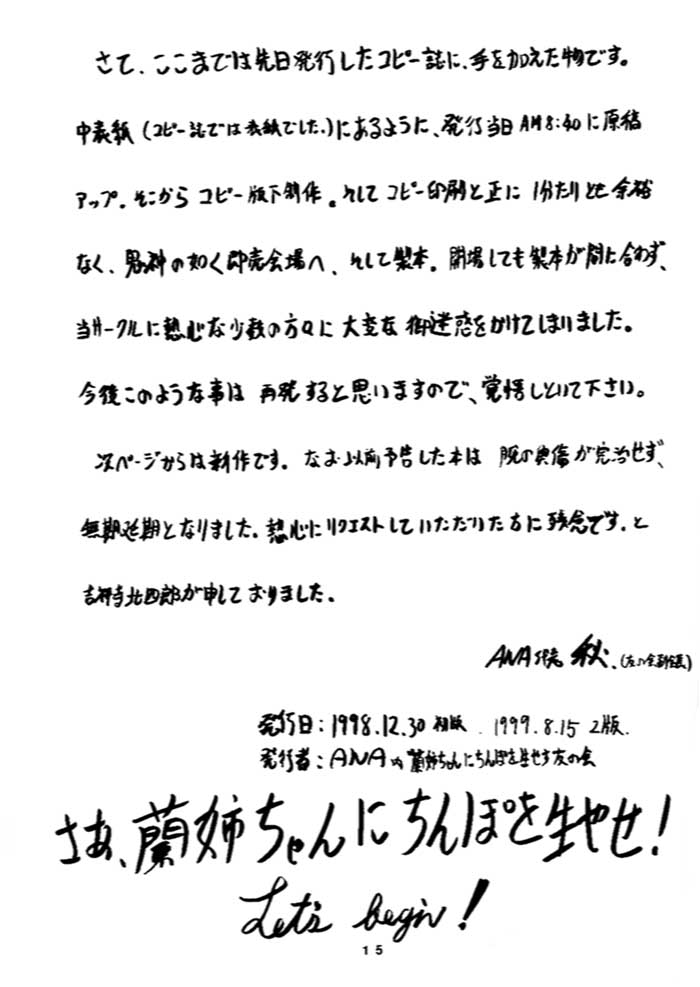 さて、ここまでは先日発行したコピー誌に、手を加えた物です。
中表紙(コピー誌では表紙でした。)にあるように、発行当日AM8:40に原稿
アップ。そこからコピー版下制作。そしてコピー印刷と正に1分たりとも余裕
なく、鬼神の如く即売会場へ、そして製本。開場しても製本が間に合わず、
当サークルに熱心な少数の方々に大変な御迷惑をかけてしまいました。
今後このような事は再発すると思いますので、覚悟しといて下さい。
次ページからは新作です。なお以前予告した本は腕の負傷が完治せず、
無期延期となりました。熱心にリクエストしていただいた方に残念です。と
吉祥寺北四郎が申しておりました。
ANA 秋.
発行日:1998.12.30 初版. 1999.8.15 2版.
発行者:ANA内 "蘭姉ちゃんにちんぽを生やす友の会
さあ、蘭姉ちゃんにちんぽを生やせ!
Let's begin!
15